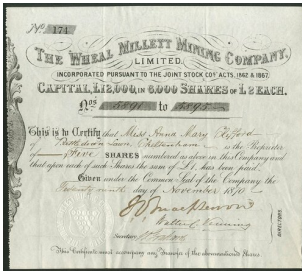 No. 174
THE WHEAL MILLETT MINING COMPANY,
LIMITED.
INCORPORATED PURSUANT TO THE JOINT STOCK COS' ACTS, 1862 & 1867.
CAPITAL, £12,000, IN 6,000 SHARES OF £2 EACH.
Nos 5891 to 5895
This is to Certify that Miss Anna Mary
of Lawn Cheltenham is the Proprietor
of Five SHARES numbered as above in this Company and
that upon each of such Shares the sum of has been paid.
Given under the Common Seal of the Company the
Twenty ninth day of November 18
Walter
Secretary
This Certificate must accompany any Transfer of the abovementioned Shares